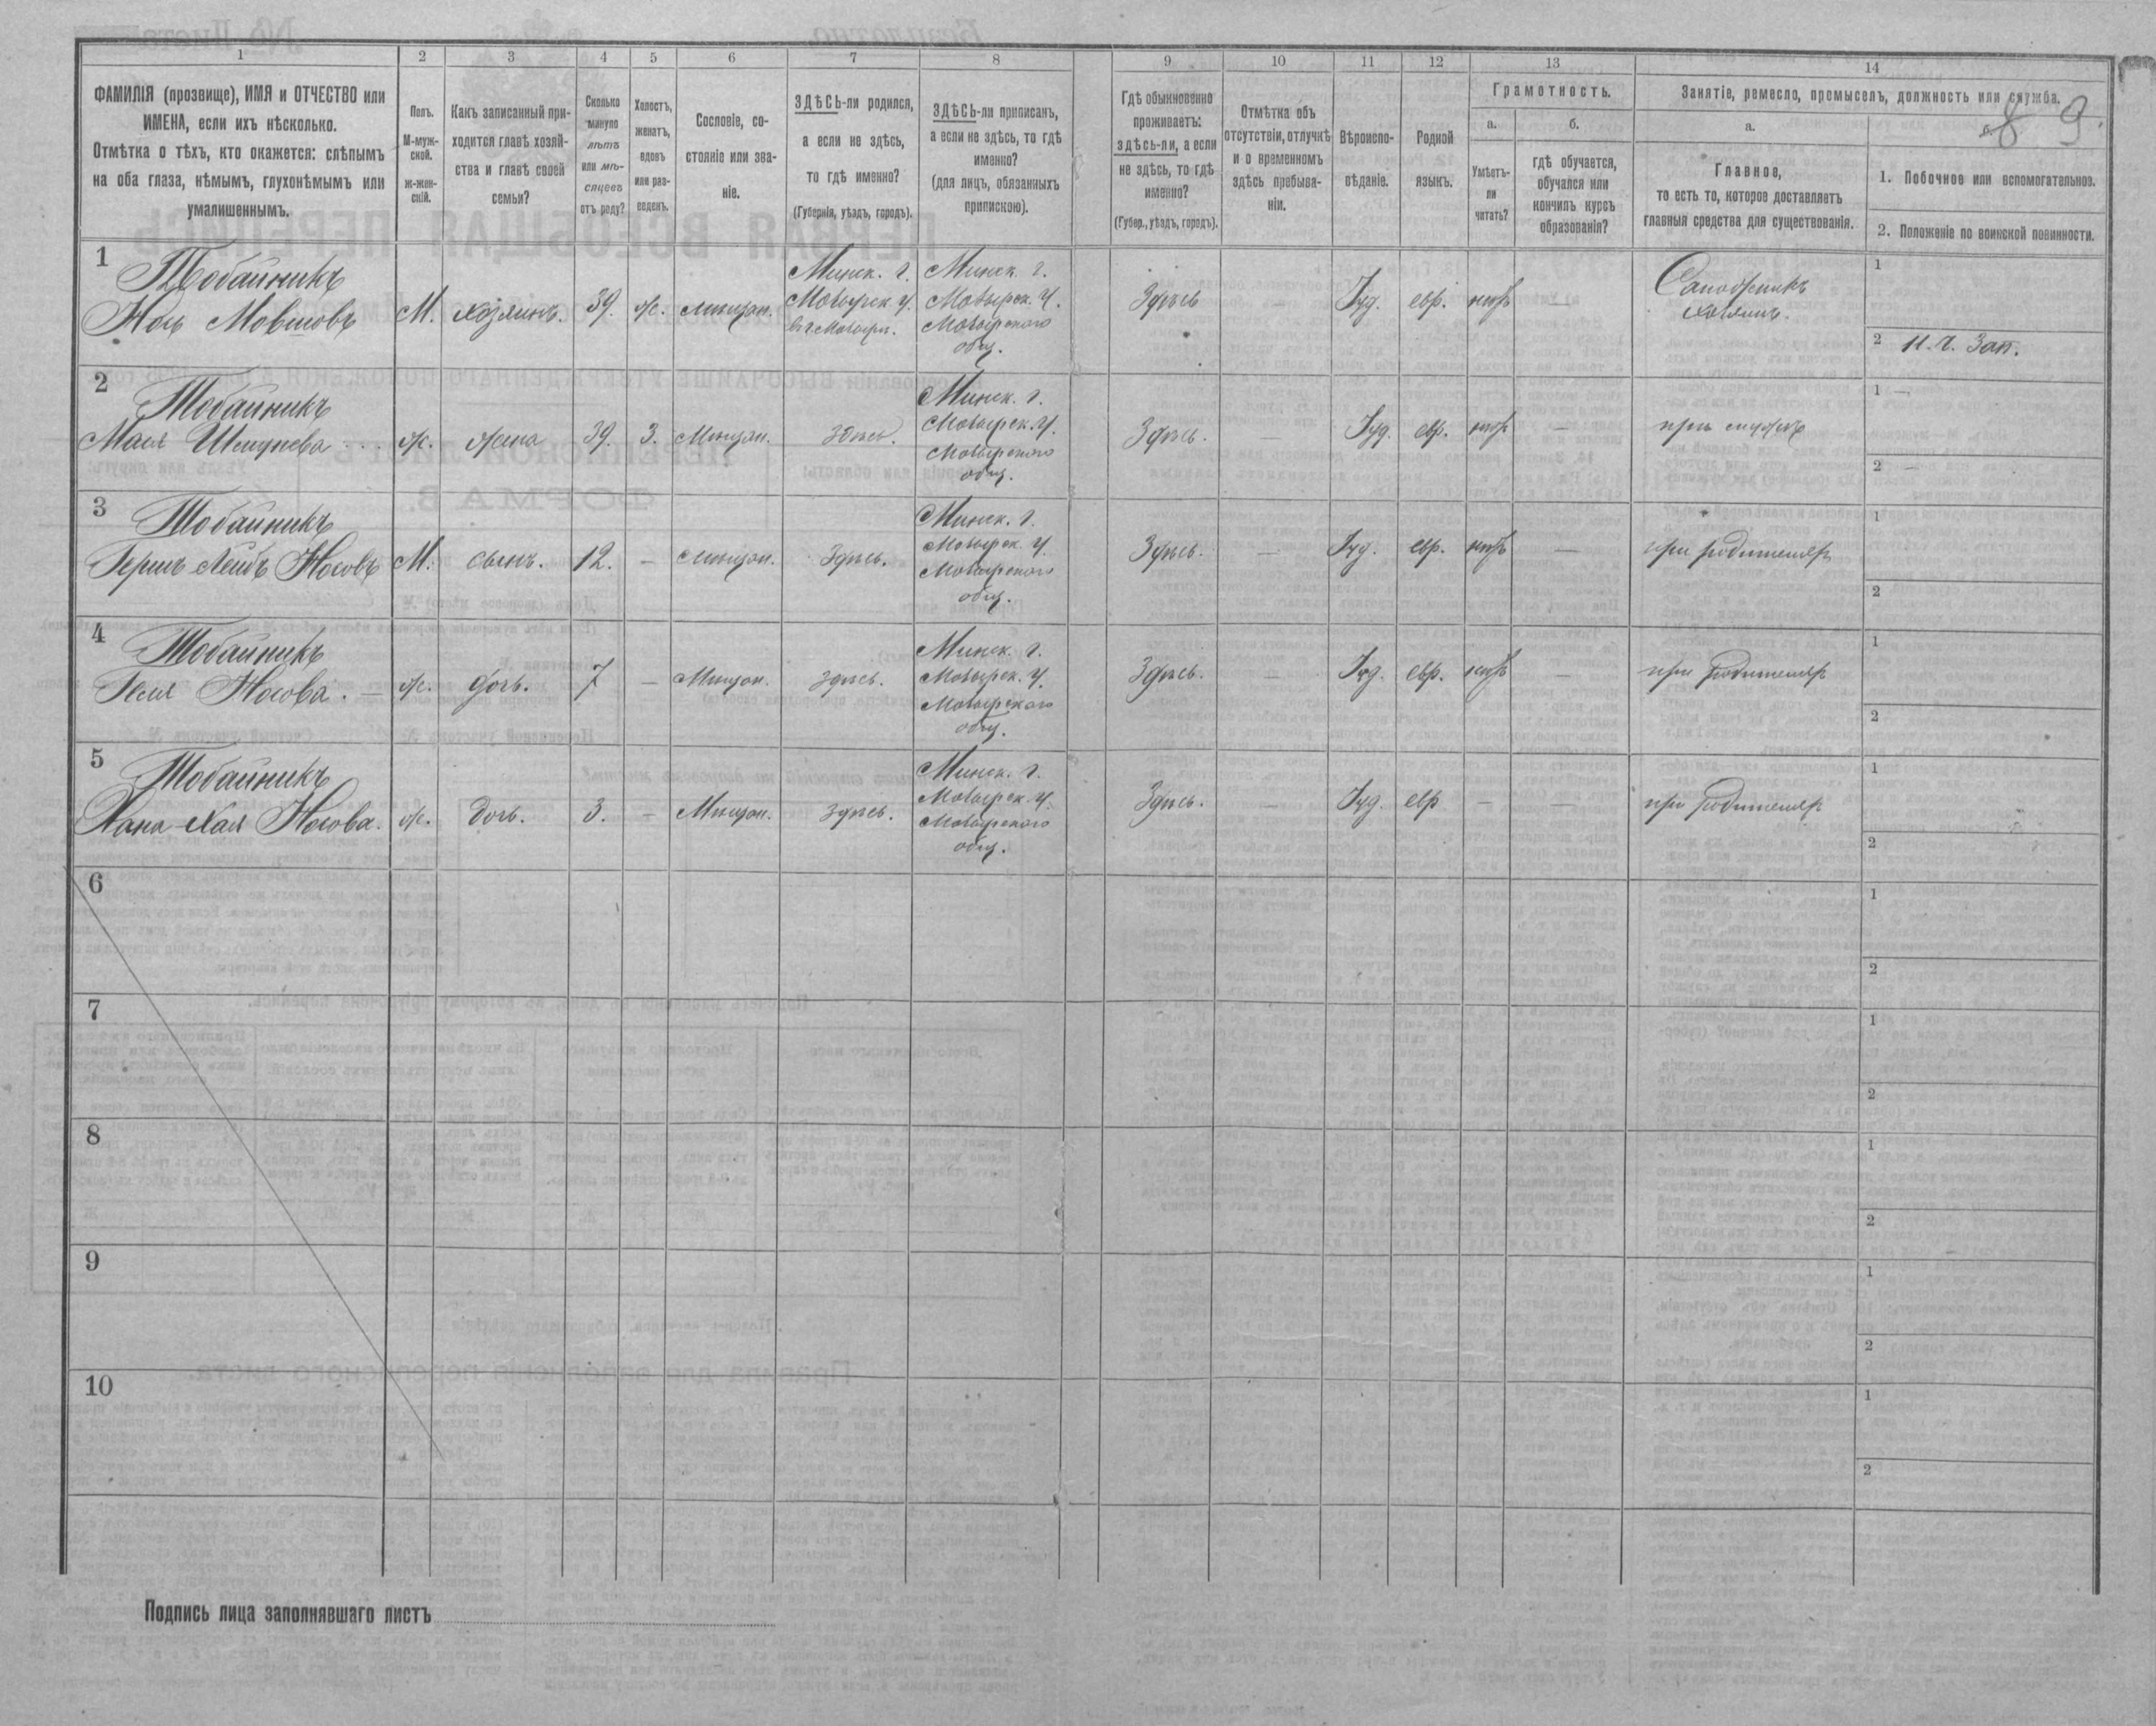 1 2 3 4 5 6 7 8 9 10 11 12 13 14
ФАМИЛІЯ (прозвище), ИМЯ и ОТЧЕСТВО или
ИМЕНА, если ихъ нѣсколько.
Отмѣтка о тѣхъ, кто окажется: слѣпымъ
на оба глаза, нѣмымъ, глухонѣмымъ или
умалишеннымъ.
Полъ.
М-муж-
ской.
ж-жен-
скій.
Какъ записанный при-
ходится главѣ хозяй-
ства и главѣ своей
семьи?
Сколько
минуло
лѣтъ
или мѣ-
сяцевъ
отъ роду?
Холостъ,
женатъ,
вдовъ
или раз-
веденъ.
Сословіе, со-
стояніе или зва-
ніе.
ЗДѢСЬ-ли родился,
а если не здѣсь,
то гдѣ именно?
(Губернія, уѣздъ, городъ).
ЗДѢСЬ-ли приписанъ,
а если не здѣсь, то гдѣ
именно?
(для лицъ, обязанныхъ
припискою).
Гдѣ обыкновенно
проживаетъ:
здѣсь-ли, а если
не здѣсь, то гдѣ
именно?
(Губер., уѣздъ, городъ).
Отмѣтка объ
отсутствіи, отлучкѣ
и о временномъ
здѣсь пребыва-
ніи.
Вѣроиспо-
вѣданіе.
Родной
языкъ.
Грамотность.
а.
Умѣетъ-
ли
читать?
б.
гдѣ обучается,
обучался или
кончилъ курсъ
образованія?
Занятіе, ремесло, промыселъ, должность или служба.
а.
Главное,
то есть то, которое доставляетъ
главныя средства для существованія.
б.
8 9.
1. Побочное или вспомогательное.
2. Положеніе по воинской повинности.
1
Тобайникъ
Носъ Мовшовъ
М. хозяинъ. 39. ж. мѣщан.
Минск. г.
Мозырск. у.
Минск. г.
Мозырск. у.
Мозырского
общ.
Здѣсь — Іуд. евр. нѣтъ —
Сапожникъ
хозяинъ.
1
2 н. ч. зап.
2
Тобайникъ
Мася
ж. жена 39. З. Мѣщан. здѣсь.
Минск. г.
Мозырск. у.
Мозырского
общ.
Здѣсь. — Іуд. евр. нѣтъ — при мужѣ
1 —
2 —
3
Тобайникъ
Герш Лейбъ Носовъ
М. сынъ. 12. — мѣщан. Здѣсь.
Минск. г.
Мозырск. у.
Мозырского
общ.
Здѣсь. — Іуд. евр. нѣтъ — при родителяхъ
1
2
4
Тобайникъ
Носова. — ж. дочь. 7 — Мѣщан. здѣсь.
Минск. г.
Мозырск. у.
Мозырского
общ.
Здѣсь. — Іуд. евр. нѣтъ — при родителяхъ
1
2
5
Тобайникъ
Хана Хая Носова.
ж. дочь. 3. — Мѣщан. здѣсь.
Минск. г.
Мозырск. у.
Мозырского
общ.
Здѣсь. — Іуд. евр — — при родителяхъ
1
2
6
1
2
7
1
2
8
1
2
9
1
2
10
1
2
Подпись лица заполнявшаго листъ